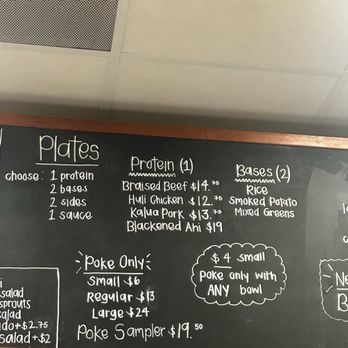 Plates
choose: 1 protein
2 bases
2 sides
1 sauce
Protein (1)
Braised Beef $14.
Huli Chicken $12.
Kalua Pork $13.
Blackened Ahi $19
Bases (2)
Rice
Smoked Potato
Mixed Greens
Poke Only
Small $6
Regular $13
Large $24
Poke Sampler $19.50
$4 small
Poke only with
ANY bowl
salad
sprouts
salad
+$2.75
salad +$2